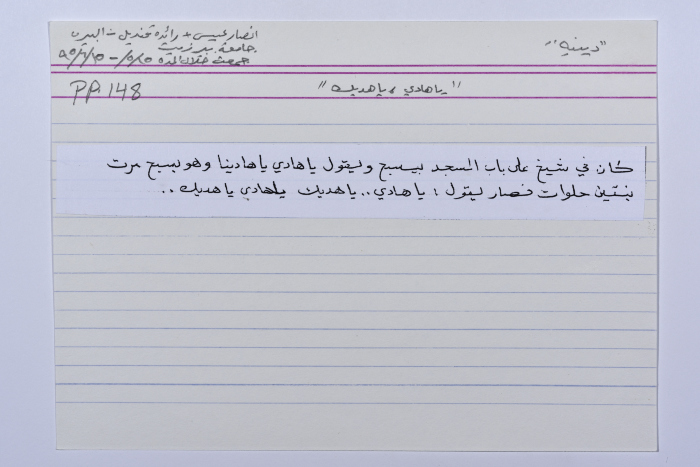 "دينيه"
انصار عيسى + رائده قنديل - البيره
جامعة بيرزيت
جمعت خلال المده
PP. 148
"ياهادي، ياهديك"
كان في شيخ على باب المسجد بيسبح وبقول ياهادي ياهادينا وهو بسبح مرت
بنتين حلوات فصار يقول: ياهادي.. ياهديك ياهادي ياهديك..